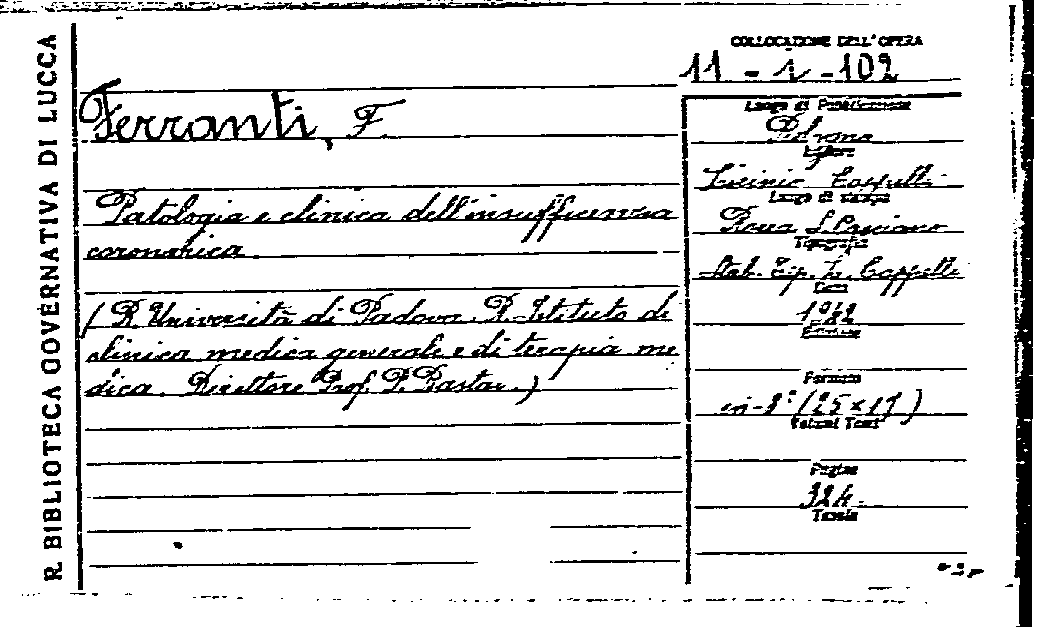 R. BIBLIOTECA GOVERNATIVA DI LUCCA
COLLOCAZIONE DELL'OPERA
11 - 1 - 102
Ferranti, F.
Patologia e clinica dell'insufficenza
coronarica.
(R. Università di Padova. R. Istituto di
clinica medica generale e di terapia me
dica. Direttore Prof. P.
Luogo di Pubblicazione
Editore
Licinio Cappelli
Luogo di stampa
Rocca S. Casciano
Tipografia
Stab. Tip. L. Cappelli
Data
1942
Formato
in-8° (25 x 17)
Volumi Tomi
Pagine
324.
Tavole